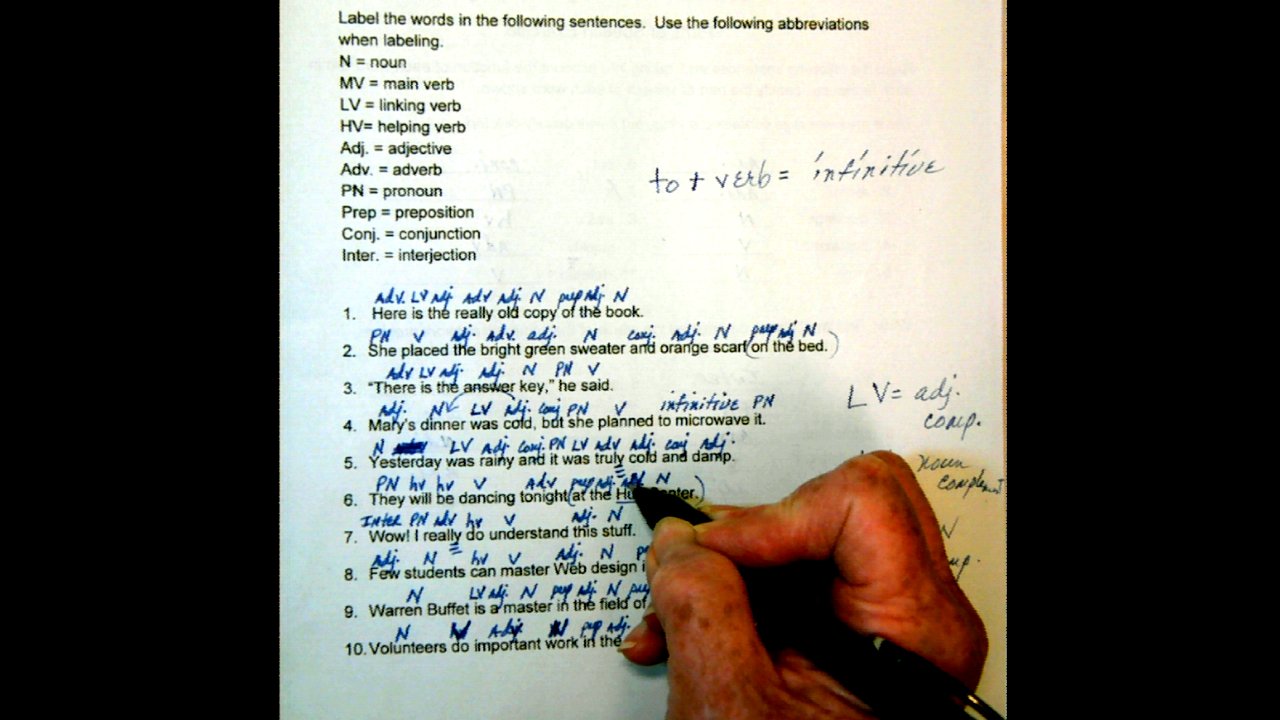 Label the words in the following sentences. Use the following abbreviations
when labeling.
N = noun
MV = main verb
LV = linking verb
HV= helping verb
Adj. = adjective
Adv. = adverb
PN = pronoun
to + verb = infinitive
Prep = preposition
Conj. = conjunction
Inter. = interjection
Adv. LV Adj. Adv Adj. N prep Adj. N
1. Here is the really old copy of the book.
PN V Adj. Adv. adj. N conj. Adj. N prep Adj N
2. She placed the bright green sweater and orange scarf (on the bed.)
Adv LV Adj. Adj. N PN V
3. “There is the answer key,” he said.
Adj. N LV Adj. conj PN V infinitive PN
LV = adj.
comp.
4. Mary’s dinner was cold, but she planned to microwave it.
N LV Adj. conj. PN LV Adv Adj. conj Adj.
5. Yesterday was rainy and it was truly cold and damp.
noun
PN hv hv V Adv prep Adj. N
6. They will be dancing tonight (at the
Inter PN adv hv V adj. N
7. Wow! I really do understand this stuff.
N
Adj. N hv V Adj. N
8. Few students can master Web design
N LV Adj. N prep Adj. N
9. Warren Buffet is a master in the field of
N Adj. prep Adj.
10. Volunteers do important work in the